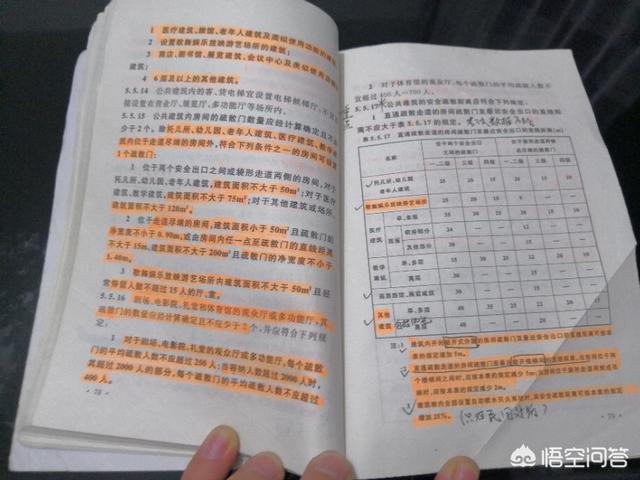 1 医疗建筑、旅馆、老年人建筑及类似使用功能的建筑;
2 设置歌舞娱乐放映游艺场所的建筑;
3 商店、图书馆、展览建筑、会议中心及类似使用功能的
建筑;
4 6层及以上的其他建筑。
5.5.14 公共建筑内的客、货电梯宜设置电梯候梯厅,不宜直
接设置在营业厅、展览厅、多功能厅等场所内。
5.5.15 公共建筑内房间的疏散门数量应经计算确定且不应少
于2个。除托儿所、幼儿园、老年人建筑、医疗建筑、教学建
筑内位于走道尽端的房间外,符合下列条件之一的房间可设置
1个疏散门:
1 位于两个安全出口之间或袋形走道两侧的房间,对于托
儿所、幼儿园、老年人建筑,建筑面积不大于50m²;对于医疗
建筑、教学建筑,建筑面积不大于75m²;对于其他建筑或场所,
建筑面积不大于120m²。
2 位于走道尽端的房间,建筑面积小于50m²且疏散门的
净宽度不小于0.90m,或由房间内任一点至疏散门的直线距离
不大于15m、建筑面积不大于200m²且疏散门的净宽度不小于
1.40m。
3 歌舞娱乐放映游艺场所内建筑面积不大于50m²且经
常停留人数不超过15人的厅、室。
5.5.16 剧场、电影院、礼堂和体育馆的观众厅或多功能厅,其
疏散门的数量应经计算确定且不应少于2个,并应符合下列规
定:
1 对于剧场、电影院、礼堂的观众厅或多功能厅,每个疏散
门的平均疏散人数不应超过250人;当容纳人数超过2000人时,
其超过2000人的部分,每个疏散门的平均疏散人数不应超过
400人。
78
2 对于体育馆的观众厅,每个疏散门的平均疏散人数不
宜超过400人~700人。
5.5.17 公共建筑的安全疏散距离应符合下列规定:
1 直通疏散走道的房间疏散门至最近安全出口的直线距
离不应大于表5.5.17的规定。
表5.5.17 直通疏散走道的房间疏散门至最近安全出口的直线距离(m)
名称 位于两个安全出口之间的疏散门 位于袋形走道两侧或尽端的疏散门
一、二级 三级 四级 一、二级 三级 四级
托儿所、幼儿园 老年人建筑 25 20 15 20 15 10
歌舞娱乐放映游艺场所 25 20 15 9
医疗建筑 单、多层 35 30 25 20 15 10
高层 病房部分 24 12
其他部分 30 15
教学建筑 单、多层 35 30 25 22 20 10
高层 30 15
高层旅馆、展览建筑 30 15
其他建筑 单、多层 40 35 25 22 20 15
高层 40 20
注:1 建筑内开向敞开式外廊的房间疏散门至最近安全出口的直线距离可按本
表的规定增加5m。
2 直通疏散走道的房间疏散门至最近敞开楼梯间的直线距离,当房间位于两
个楼梯间之间时,应按本表的规定减少5m;当房间位于袋形走道两侧或尽
端时,应按本表的规定减少2m。
3 建筑物内全部设置自动喷水灭火系统时,其安全疏散距离可按本表的规定
增加25%。
79
悟空问答